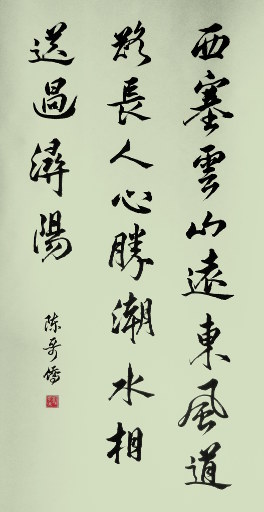 西塞雲山遠東風道
路長人心勝潮水相
送過潯陽
陈